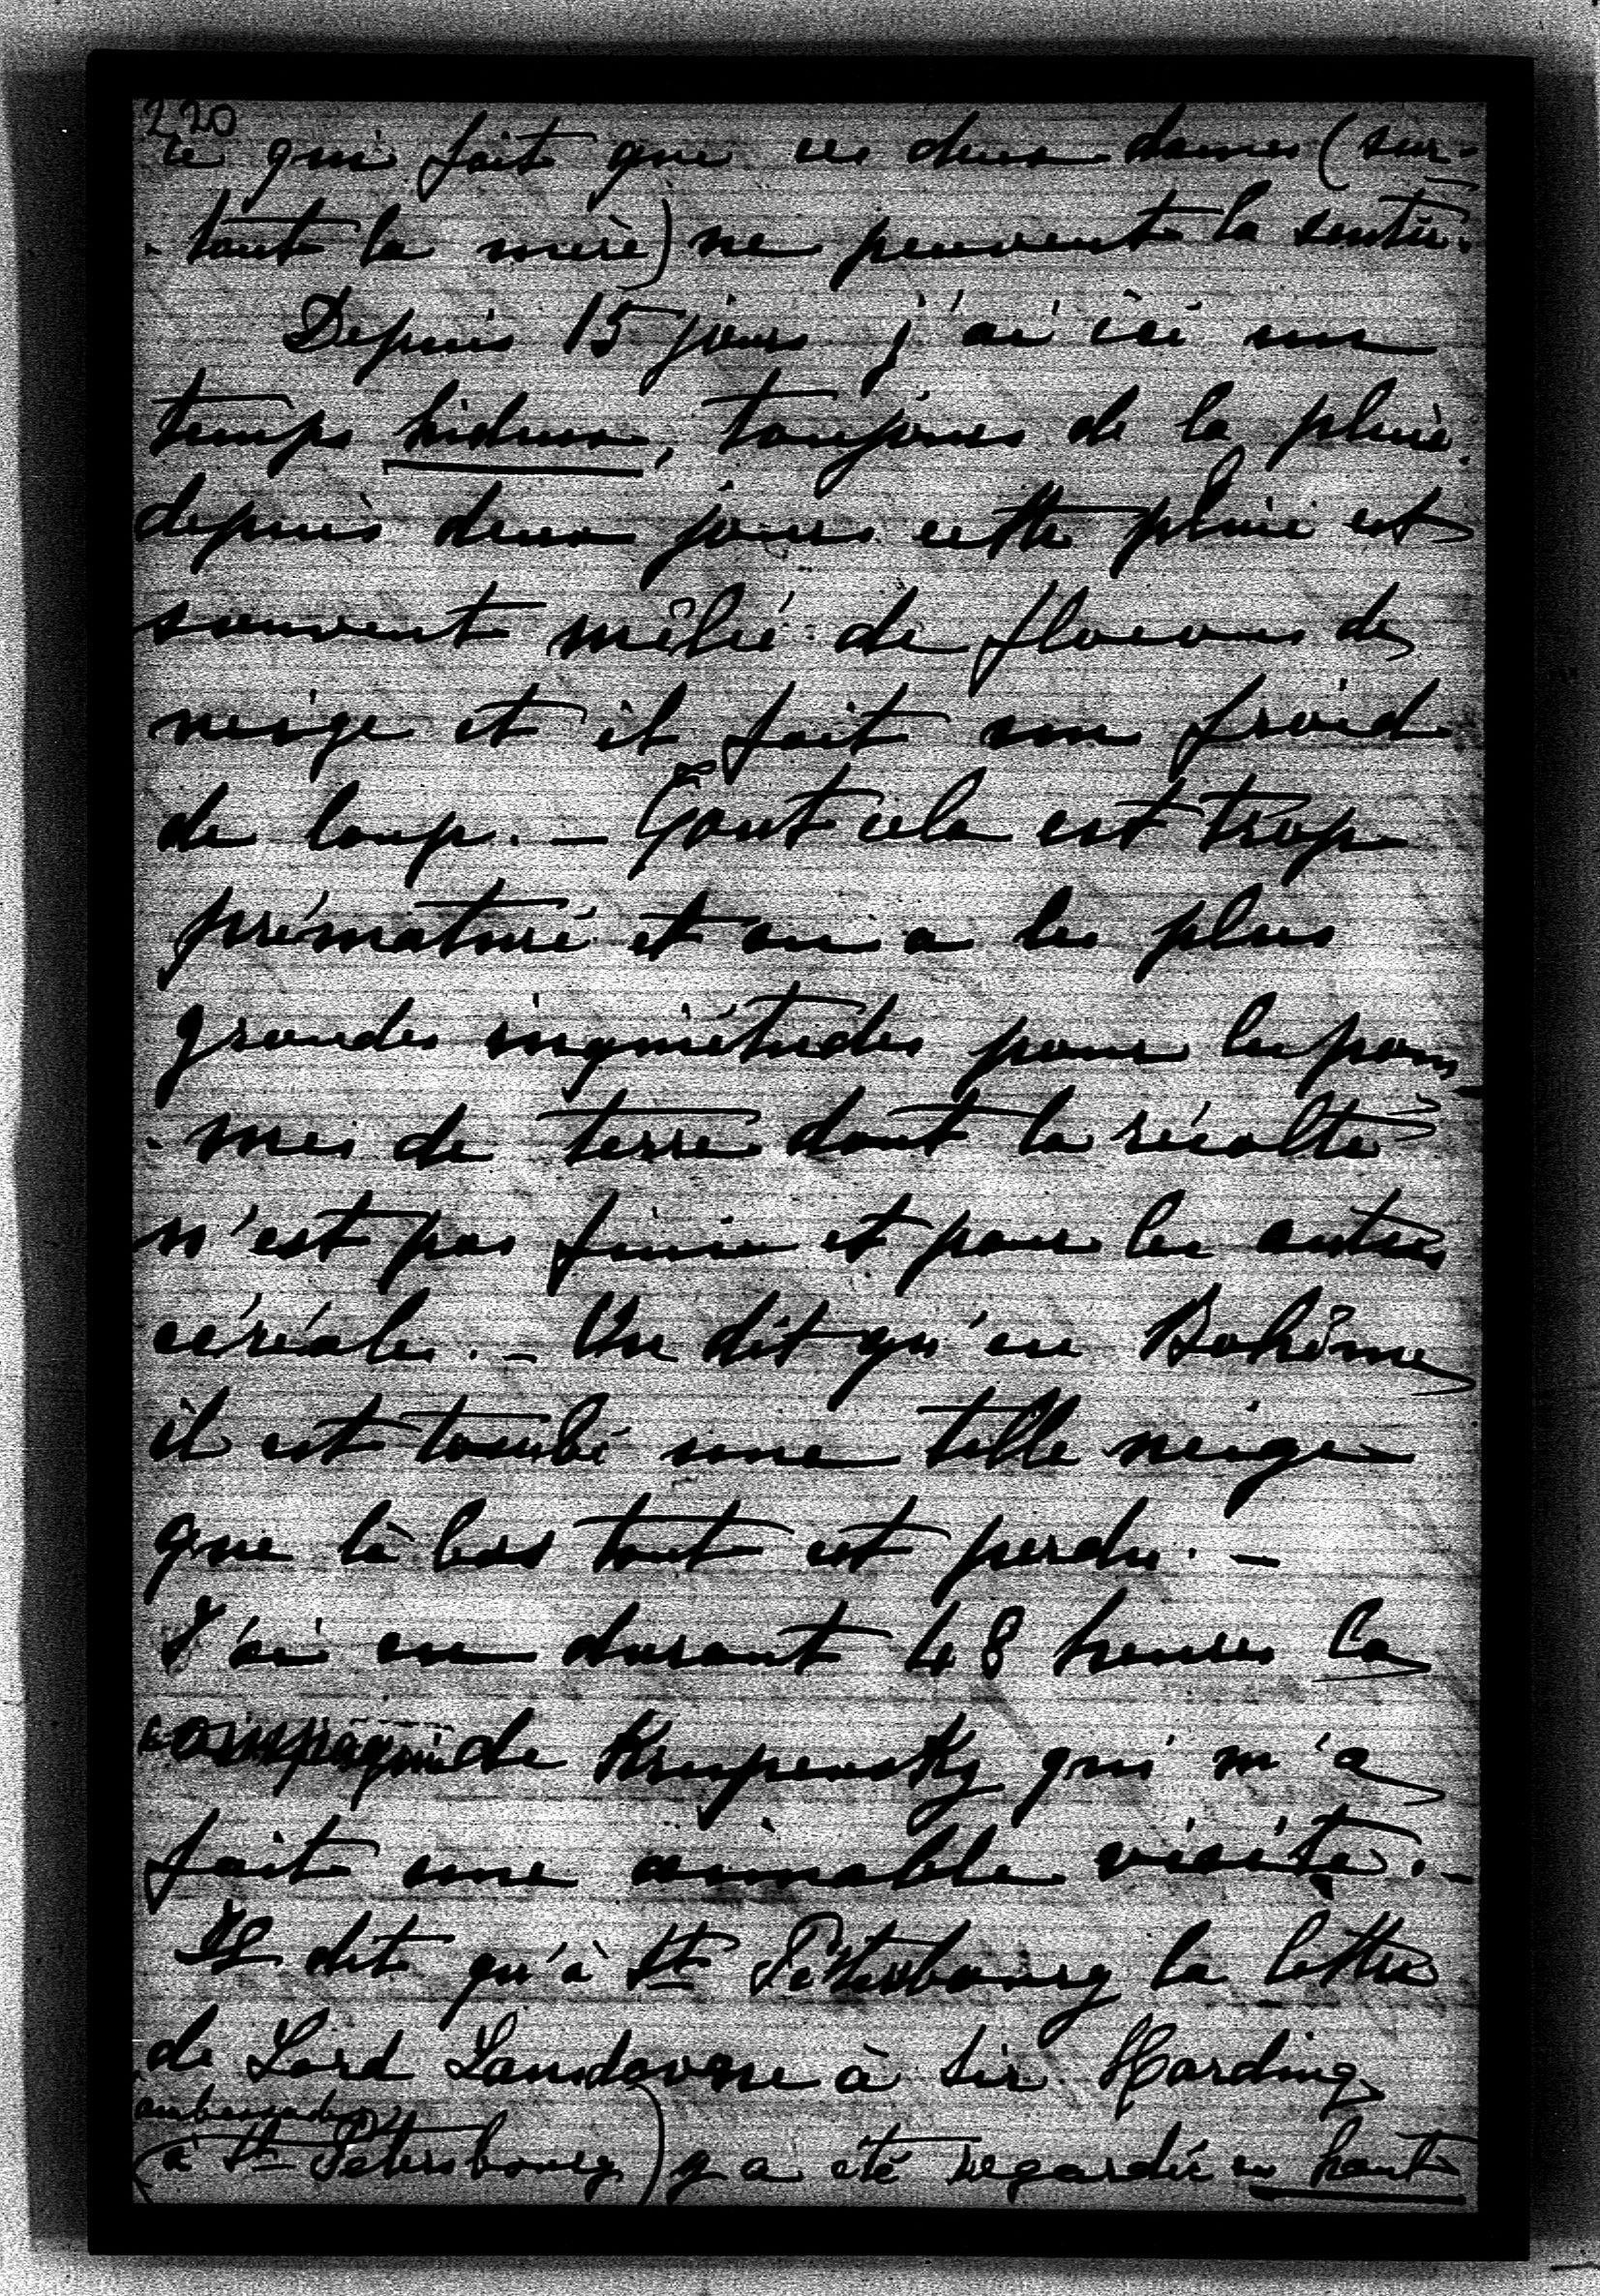 220
ce qui fait que ces deux dames (sur-
-tout la mère) ne peuvent la sentir.
Depuis 15 jours j'ai ici un
temps hideux, toujours de la pluie.
depuis deux jours cette pluie est
souvent mêlée de flocons de
neige et il fait un froid
de loup. — Tout cela est trop
prématuré et on a les plus
grandes inquiétudes pour les pom-
-mes de terre dont la récolte
n'est pas finie et pour les autres
céréales. — On dit qu'en Bohême
il est tombé une telle neige
que là bas tout est perdu. —
J'ai eu durant 48 heures la
compagnie de Krupensky qui m'a
fait une aimable visite. —
Il dit qu'à St Pétersbourg la lettre
de Lord Lansdowne à Sir Harding
(ambassadeur
à St Pétersbourg) y a été regardée en haut